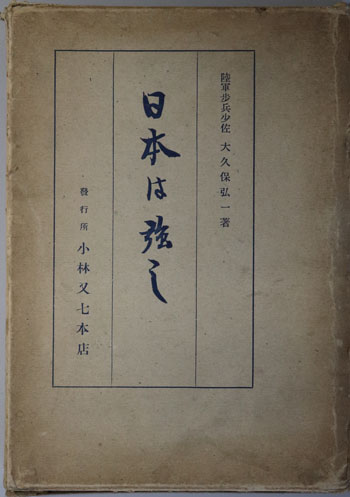 陸軍步兵少佐 大久保弘一著
日本は強し
發行所 小林又七本店